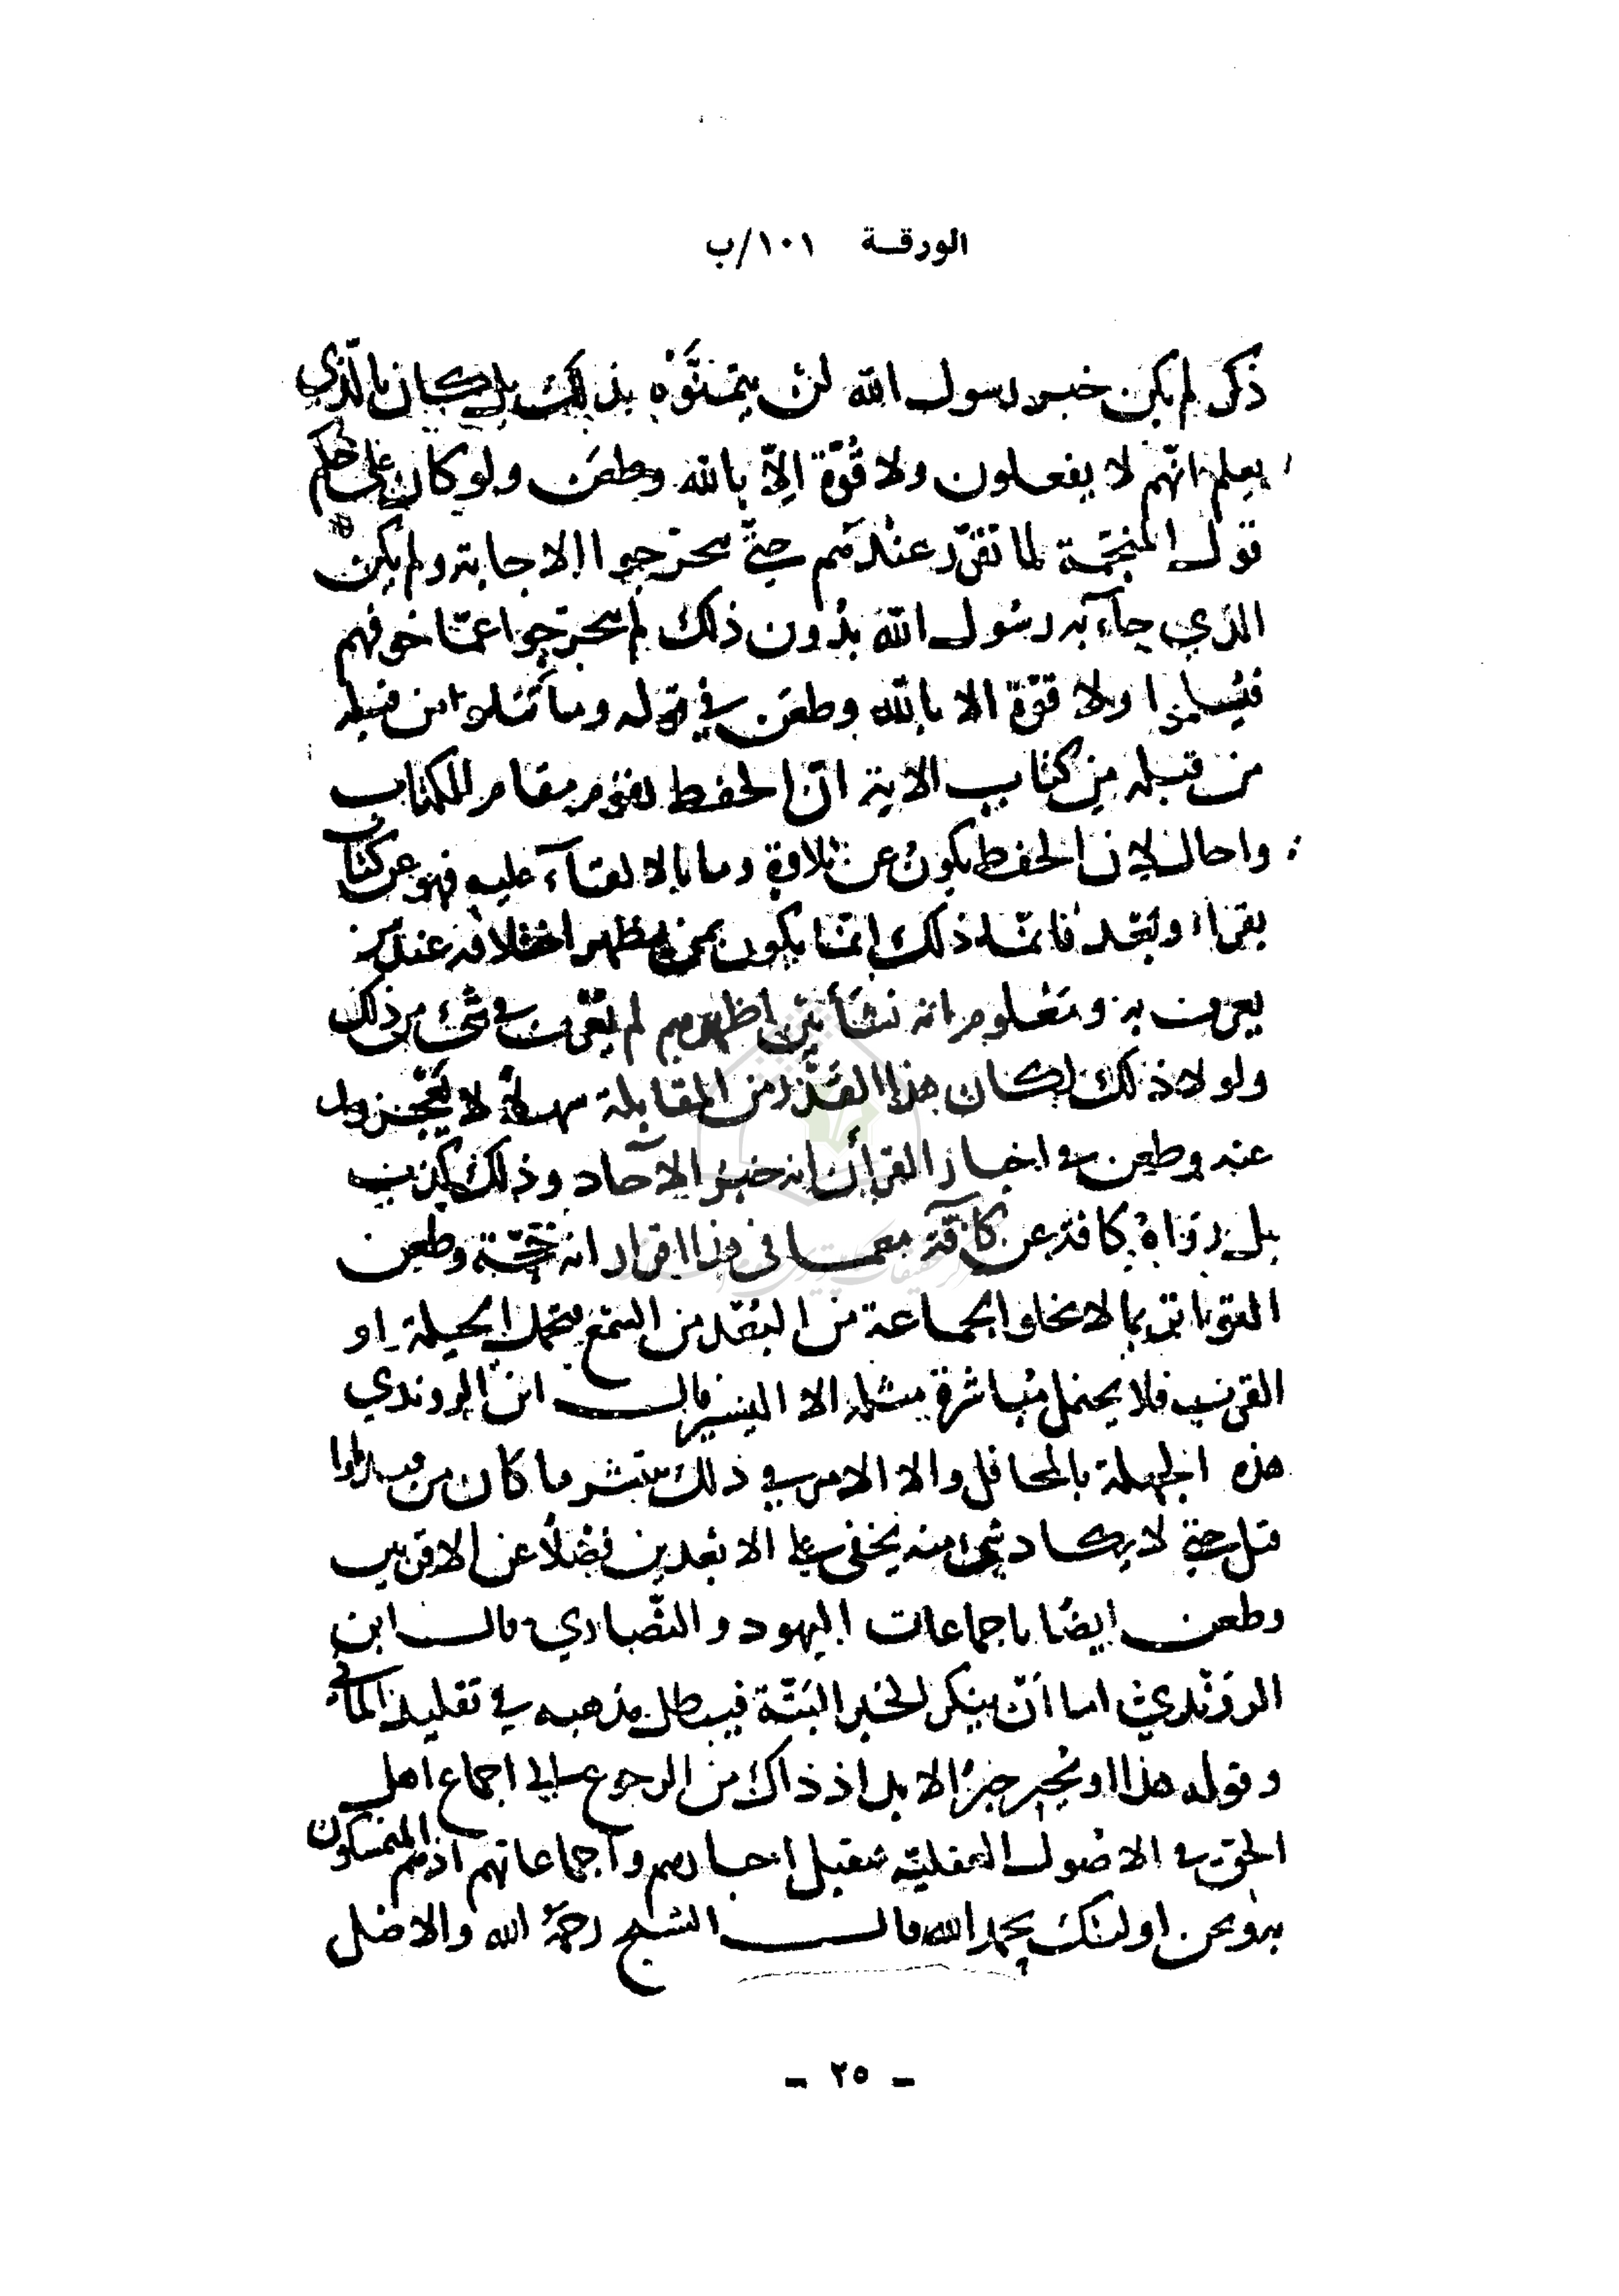 الورقة ١٠١/ب
ذكر لم يكن خبر رسول الله لن يتمنّوه بذلك بل كان بالّذي
يعلم انّهم لا يفعلون ولا قُوّة إلاّ بالله وطعن ولو كان على حكم
قول المنجّمة لما تقرّر عندهم حتى يتحرّجوا الاجابة ولم يكن
الذي جاء به رسول الله بدُون ذلك لم يتحرّجوا عمّا خوفهم
فيُسلموا ولا قوّة الا بالله وطعن في قوله وما تتلوا من قبله
من قبله مِن كتاب الاية انّ الحفظ يقوم مقام الكتاب
واحال لان الحفظ يكون عن تلاوة وما بالالقاء عليه فهو عن كتاب
يقرأ وبَعْد فانّ ذلك انّما يكون بمن يظهر اختلافه عند من
يعرف به ومَعْلوم انه نشأ بين اظهرهم لم يُعْرف في شئ من ذلك
ولولا ذلك لكان هذا القَدْر من المقابلة سهلاً لا يعجزوا
عنه وطعن في اخبار القرآن انه خبرُ الآحاد وذلك كذب
بل رَوَاهُ كافة عن كافّة فى ذا اقرار انه حُجّة وطعن
بما لا تخلوا الجماعة من البُعْد من السَّمْع الحيلة او
القرب فلا يحتمل مُباشرة مثله الا اليسير قال ابن الروندي
هذه الجهلة بالمحافل والا الامر في ذلك منتشر ما كان من
قبل حتى لا يكاد شئ منه يخفى على الابْعدين فضْلاً عن الاقربين
وطعن ايضًا باجماعات اليهود والنّصاري قال ابن
الروَنْديّ اما انْ ينكر الخبر البَتّة فيبطل مذهبه في تقليد
وقوله هذا او يُجيز خبرُ الابدا اذ ذاك من الرجوع الي اجماع اهل
الحق في الاصُول العقليّة فنقبل اخبارهم واجماعاتهم اذ هم المتمسكون
به ونحن اولئك بحمد الله قال الشيخ رحمهُ الله والاصل
- ٢٥ -